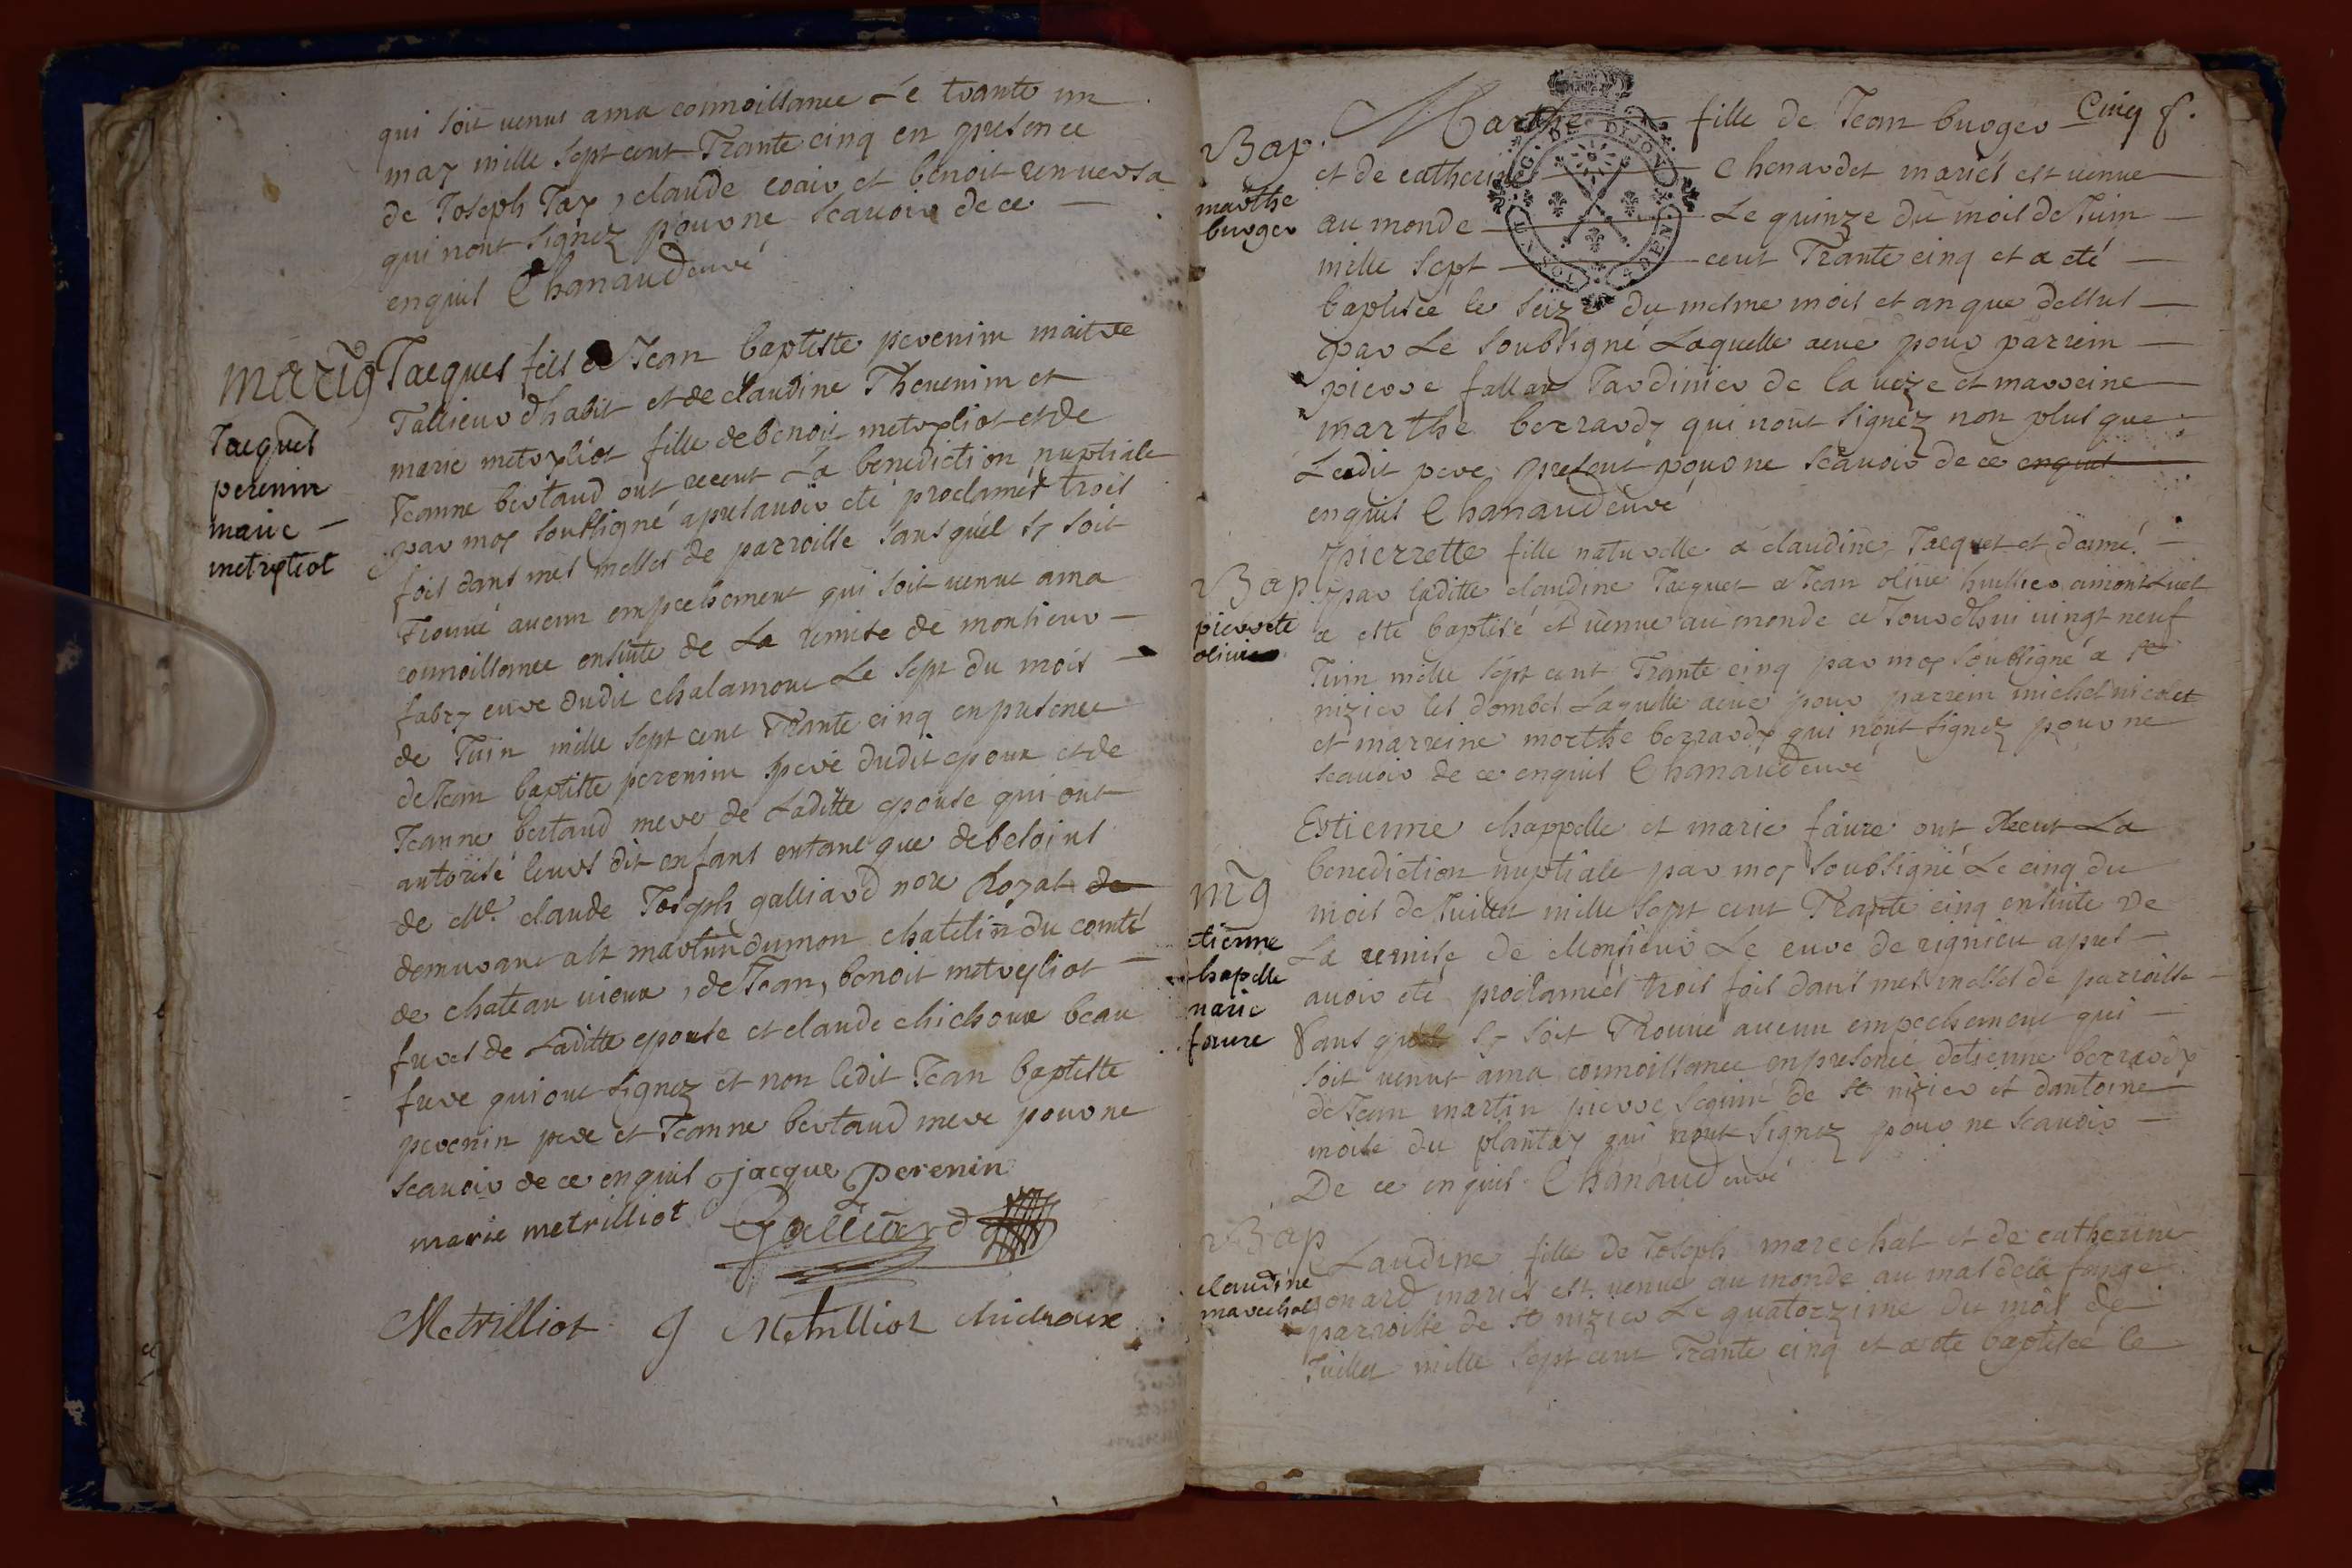 qui soit venue a ma connoissance Le trante un
may mille sept cent Trante cinq en presence
de Joseph Jay, claude coair et benoit renversa
qui nont signez pour ne scavoir de ce
enquis Chanaud curé
mariag
Jacques
perenin
marie
metrpliot
Jacques fils de Jean baptiste perenin maitre
Tallieur dhabit et de claudine Thevenin et
marie metrpliot fille de benoit metrpliot et de
Jeanne bertaud ont receut La benediction nuptiale
par moy soubsigné apres avoir eté proclamés trois
fois dans mes messes de parroisse sans quel sy soit
Trouvé aucun empechement qui soit venue a ma
connoissance ensuite de La remise de monsieur
fabry curé dudit chalamont Le sept du mois
de Juin mille sept cent Trante cinq en presence
de Jean baptiste perenin pere dudit epoux et de
Jeanne bertaud mere de Laditte epouse qui ont
autorisé leurs dit enfans entant que de besoins
de Me. claude Joseph galliard nore Royal de
demurant a st martin dumon chatelin du comté
de chateau vieux, de Jean, benoit metrpliot
freres de Laditte epouse et claude chichoux beau
frere qui ont signez et non ledit Jean baptiste
perenin pere et Jeanne bertaud mere pour ne
scavoir de ce enquis jacque perenin
marie metrilliot Galliard
Metrilliot g Metrilliot chichoux
Cinq f.
Bap.
marthe
burger
Marthe fille de Jean burger
et de catherine Chenardet mariés est venue
au monde Le quinze du mois de Juin
mille sept cent Trante cinq et a eté
baptisée le seize du mesme mois et an que dessus
par Le soubsigné Laquelle a eue pour parrein
pierre fallau Jardinier de la veze et marreine
marthe berrardy qui nont signez non plus que
Ledit pere present pour ne scavoir de ce enquis
enquis Chanaud curé
Bap
pierrete
olivier
pierrette fille naturelle a claudine Jacquet et donné
par laditte claudine Jacquet a Jean olive huissier a montluel
a esté baptisé et venue au monde ce Jourdhui vingt neuf
Juin mille sept cent Trante cinq par moy soubsigné a st
nizier les dombes Laquelle a eue pour parrein michel nicolet
et marreine marthe berrardy qui nont signez pour ne
scavoir de ce enquis Chanaud curé
mg
etienne
chapelle
marie
faure
Estienne chappelle et marie faure ont Receut La
benediction nuptiale par moy soubsigné Le cinq du
mois de Juillet mille sept cent Trante cinq ensuite De
La remise de Monsieur Le curé de rignieu apres
avoir eté proclamés trois fois dans mes messes de parroisse
Sans quel sy soit Trouvé aucun empechement qui
soit venue a ma connoissance en presence detienne berrardy
de Jean martin pierre seguin de st nizier et dantoine
moise du plantay qui nont signez pour ne scavoir
De ce enquis Chanaud curé
Bap
claudine
marechal
Laudine fille de Joseph marechal et de catherine
gonard mariés est venue au monde au mas de la fange
parroisse de st nizier Le quatorzime du mois de
Juillet mille sept cent Trante cinq et a eté baptisée le